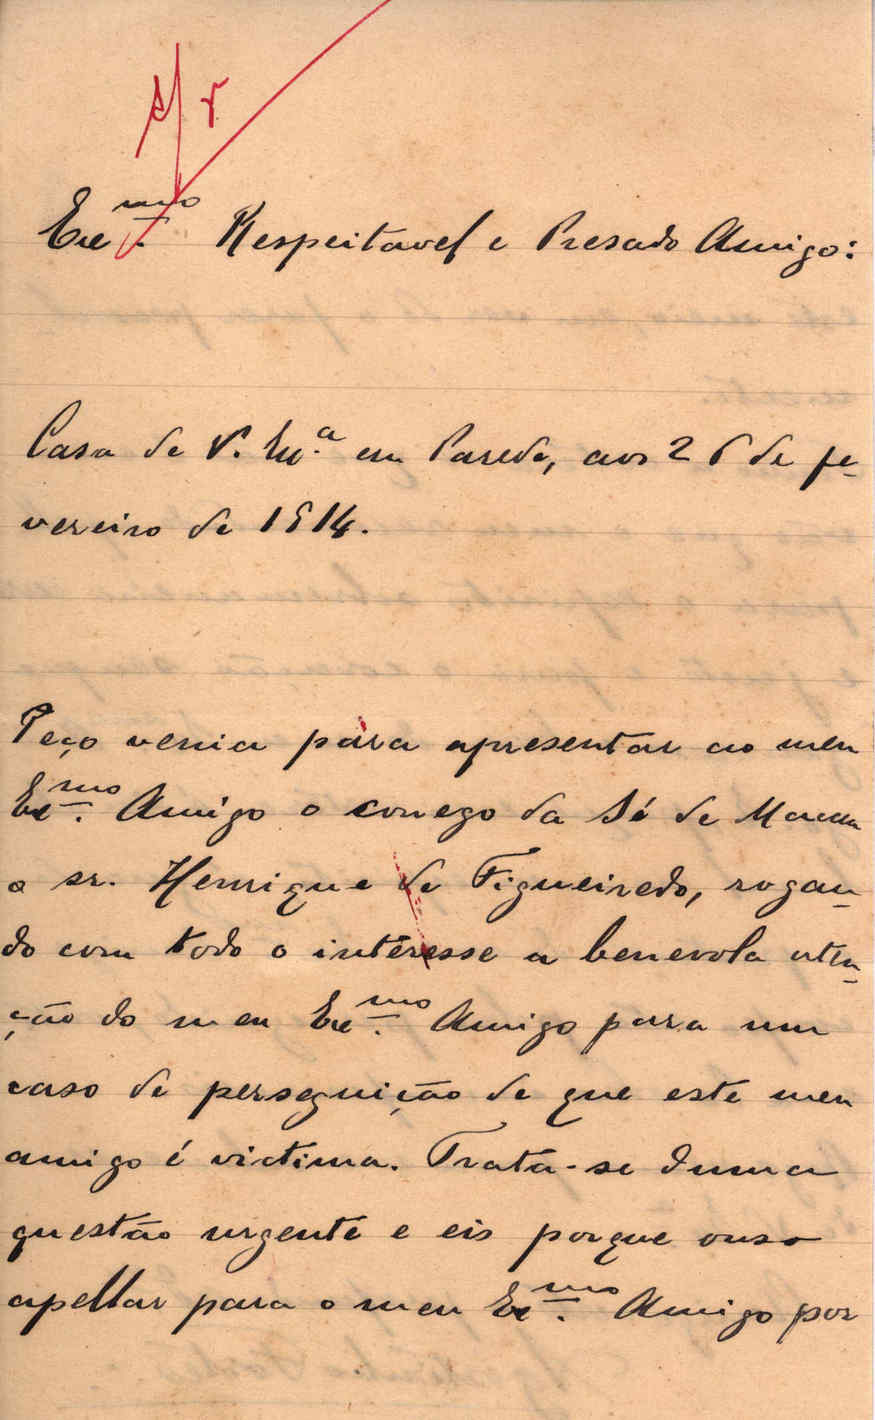 Exmo. Respeitavel e Presado Amigo:
Casa de V. Exª em Parede, aos 26 de fe-
vereiro de 1914.
Peço venia para apresentar ao meu
Exmo. Amigo o conego da Sé de
o sr. Henrique de Figueiredo, rogan-
do com todo o intéresse a benevola aten-
ção do meu Exmo. Amigo para um
caso de perseguição de que este meu
amigo é victima. Trata-se duma
questão urgente e eis porque ouso
apellar para o meu Exmo. Amigo por